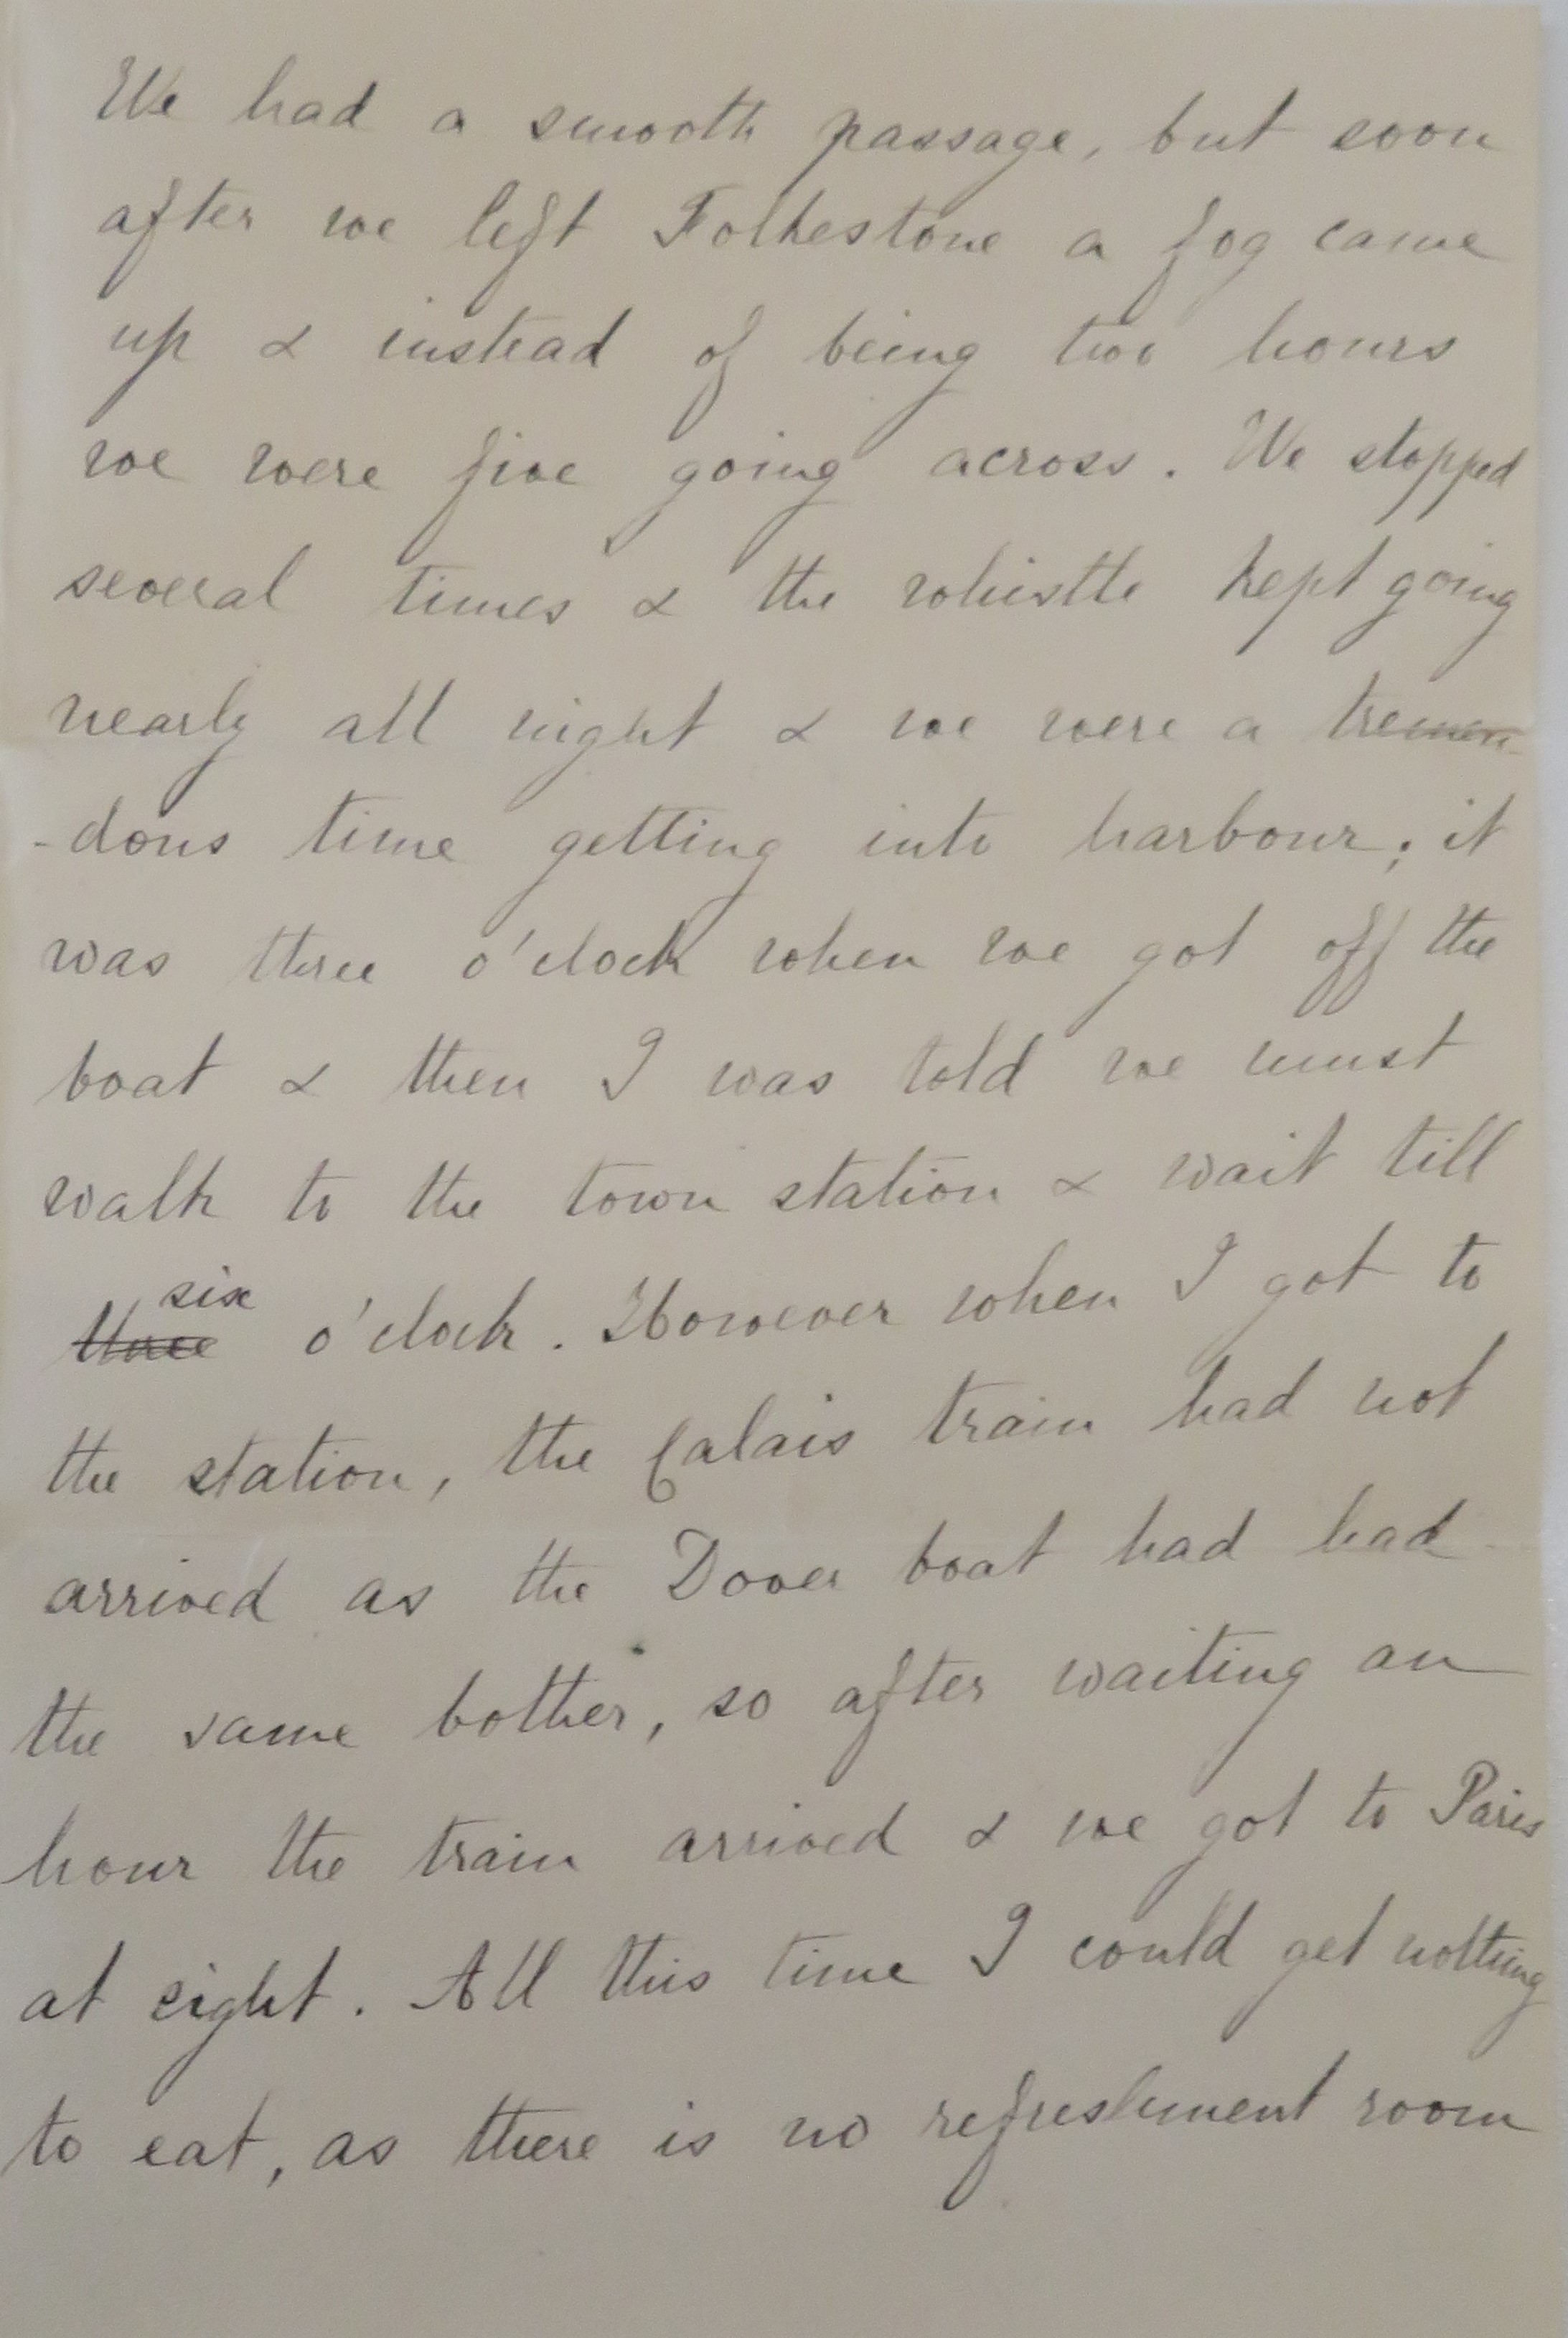 We had a smooth passage, but soon
after we left Folkestone a fog came
up & instead of being two hours
we were five going across. We stopped
several times & the whistle kept going
nearly all night & we were a tremen-
-dous time getting into harbour; it
was three o'clock when we got off the
boat & then I was told we must
walk to the town station & wait till
six
three o'clock. However when I got to
the station, the Calais train had not
arrived as the Dover boat had had
the same bother, so after waiting an
hour the train arrived & we got to Paris
at eight. All this time I could get nothing
to eat, as there is no refreshment room